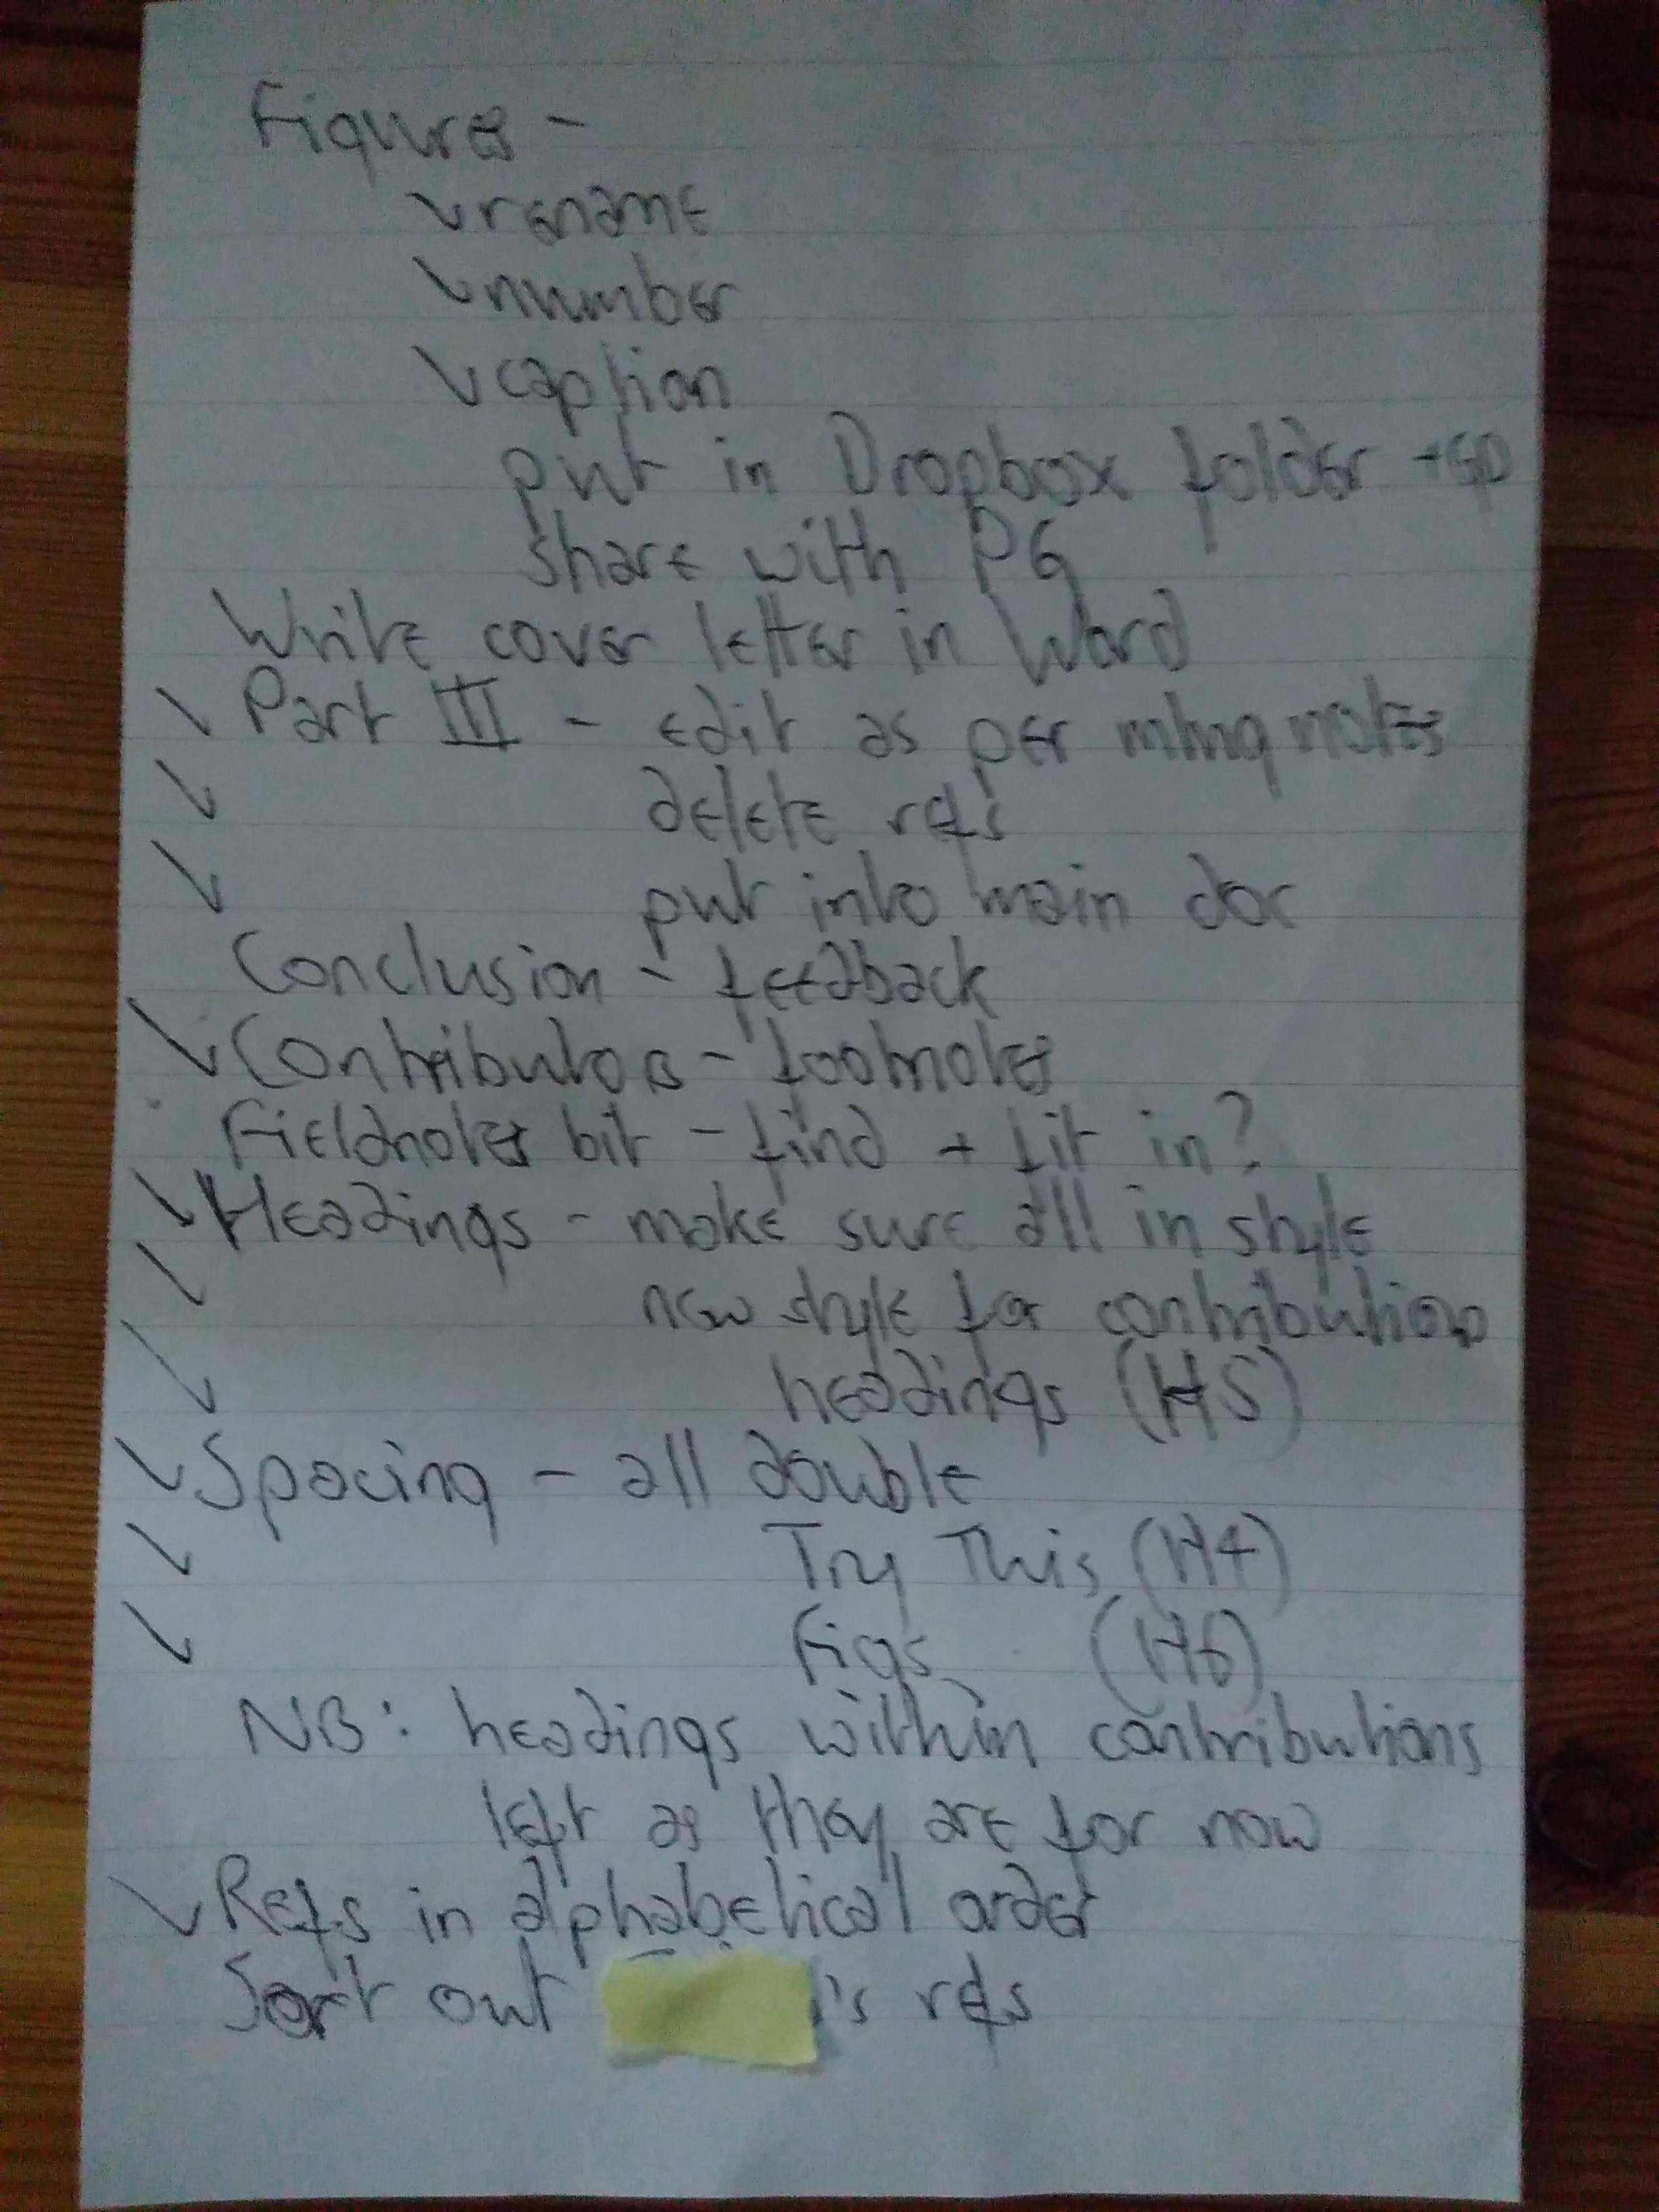 Figures -
✓ rename
✓ number
✓ caption
put in Dropbox folder +
share with PG
Write cover letter in Word
✓ Part III - edit as per mtng notes
✓ delete refs
✓ put into main doc
Conclusion - feedback
✓ Contributors - footnotes
Fieldnotes bit - find + fit in?
✓ Headings - make sure all in style
✓ new style for contributions
✓ headings (H5)
✓ Spacing - all double
✓ Try This (H4)
✓ Figs (H6)
NB: headings within contributions
left as they are for now
✓ Refs in alphabetical order
Sort out 's refs